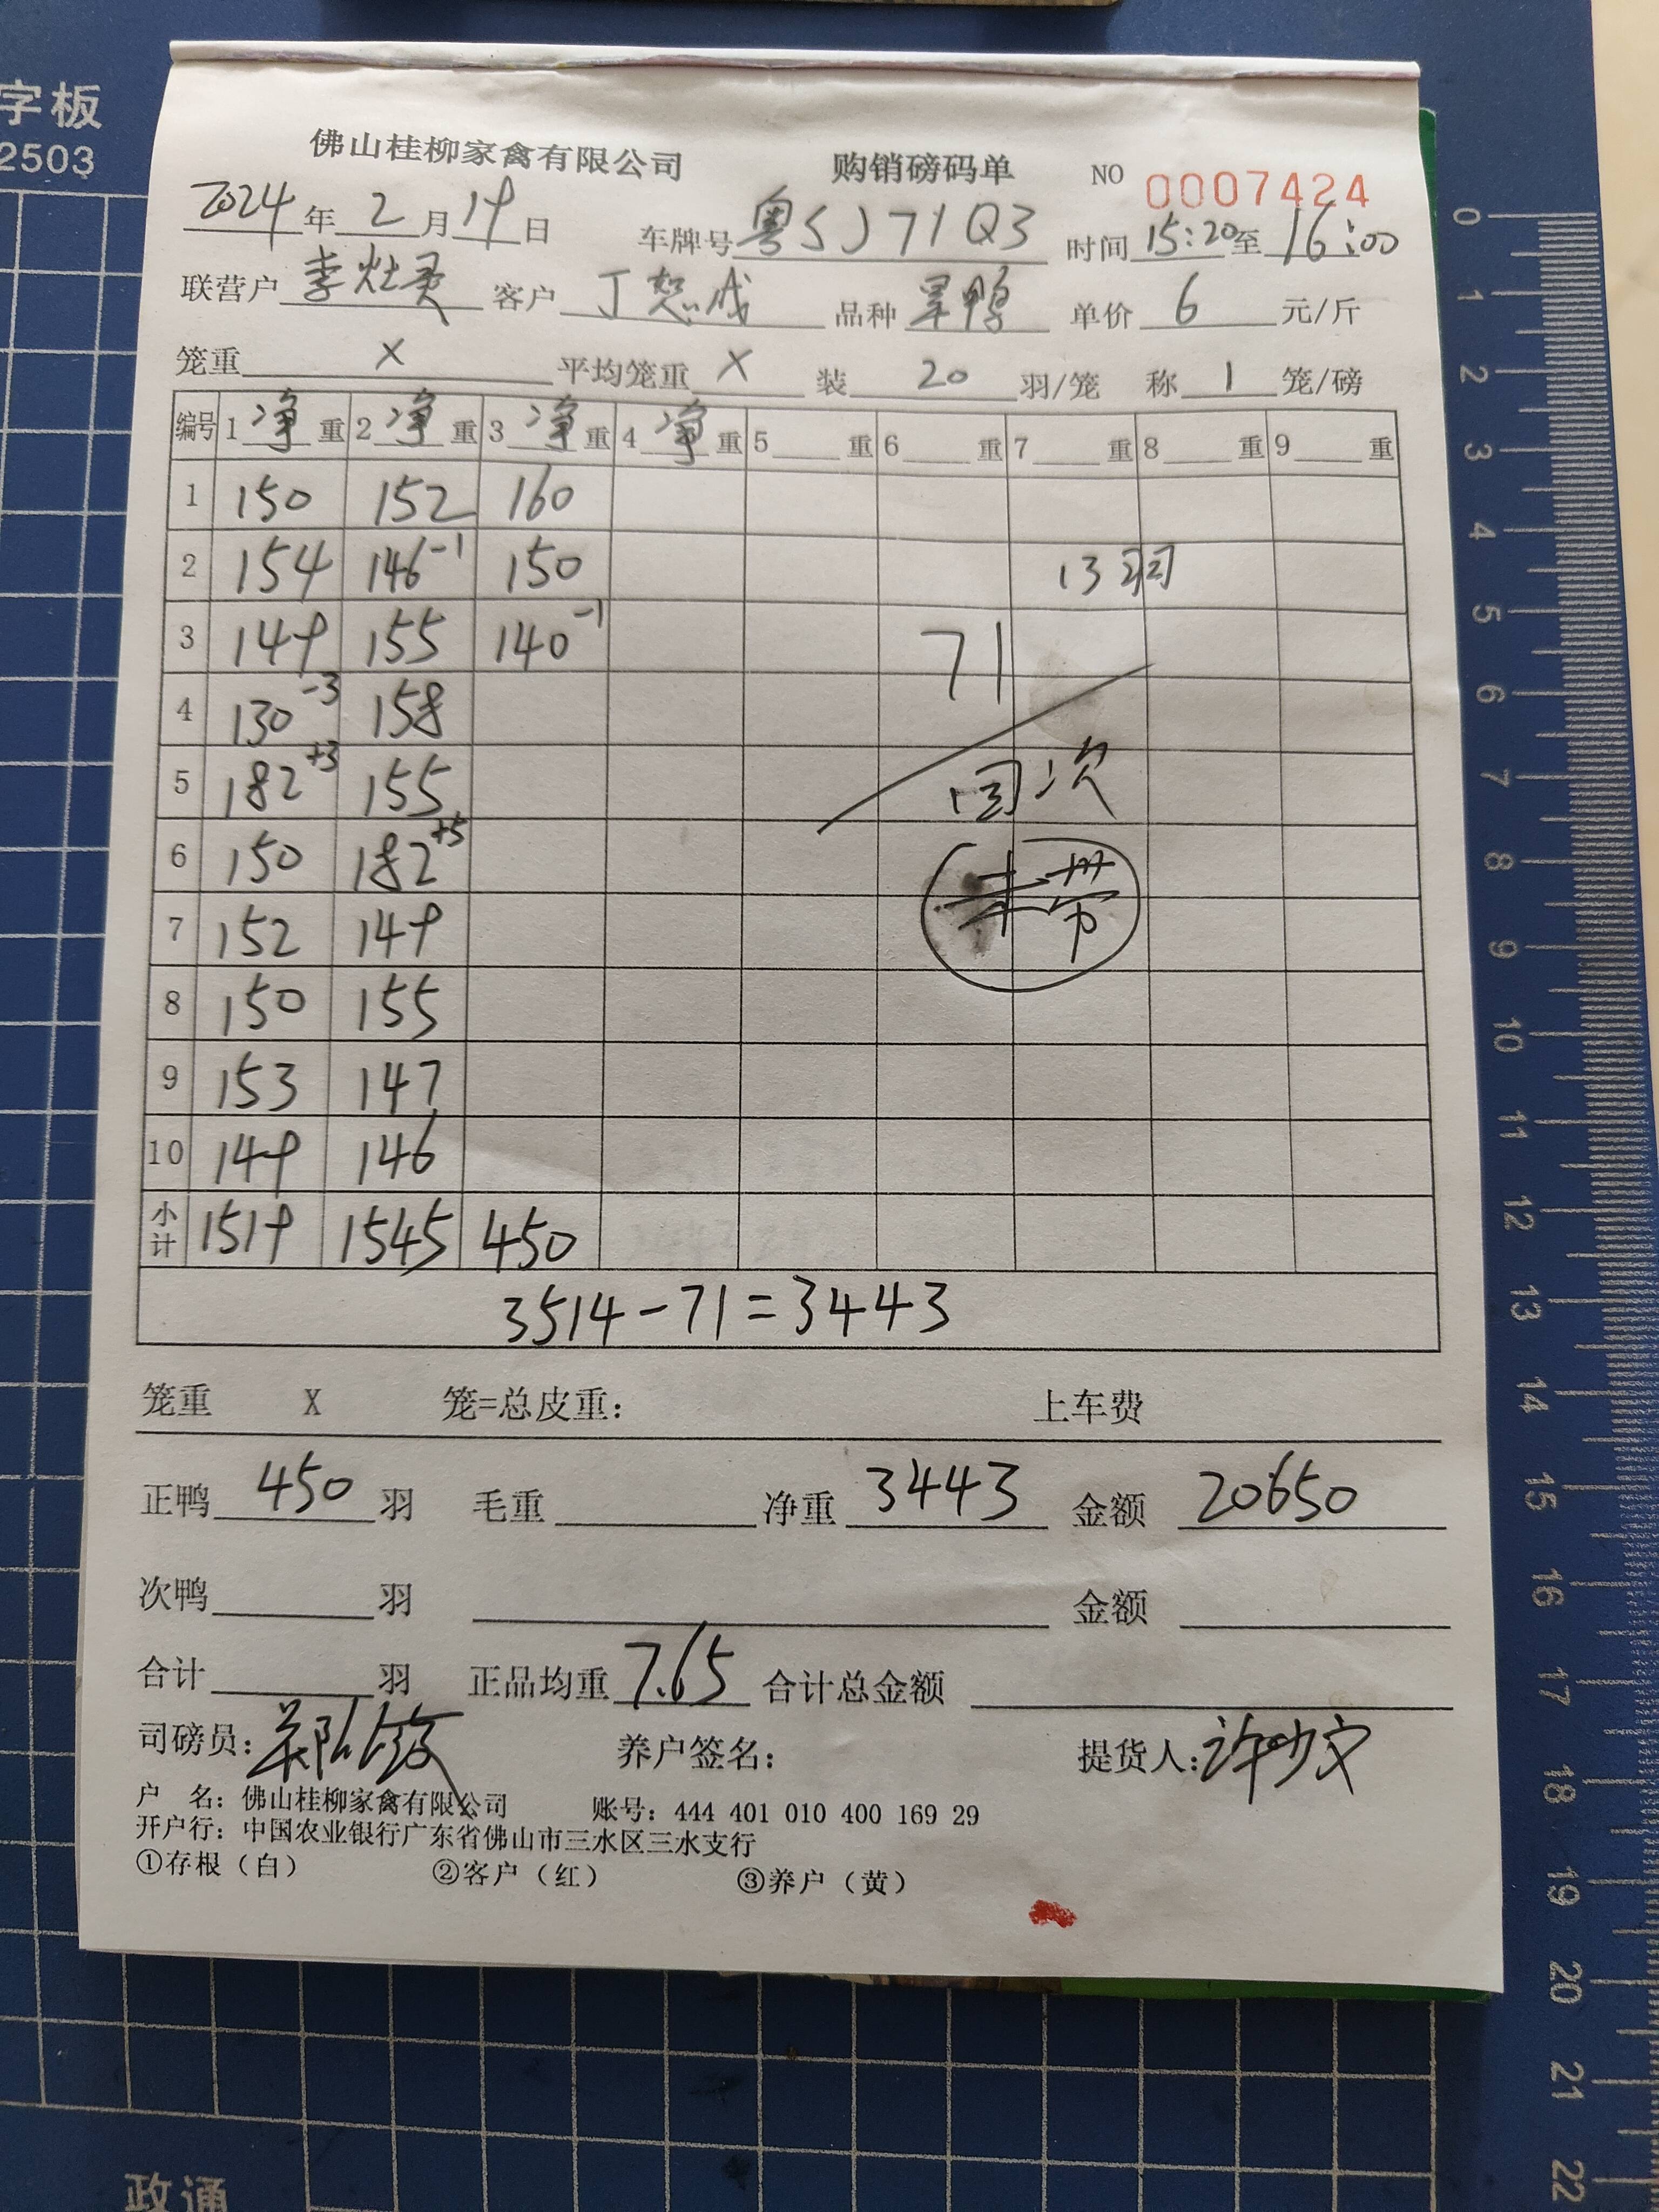 字板
2503
佛山桂柳家禽有限公司 购销磅码单 NO 0007424
2024年2月19日 车牌号 粤SJ71Q3 时间 15:20至16:00
联营户 李灶 客户 丁 成 品种 鸭 单价 6 元/斤
笼重 X 平均笼重 X 装 20 羽/笼 称 1 笼/磅
编号 1净重 2净重 3净重 4净重 5重 6重 7重 8重 9重
1 150 152 160
2 154 146-1 150 13羽
3 149 155 140-1 71
4 130-3 158
5 182+3 155 回次
6 150 182+5 未带
7 152 149
8 150 155
9 153 147
10 149 146
小计 1519 1545 450
3514-71=3443
笼重 X 笼=总皮重: 上车费
正鸭 450 羽 毛重 净重 3443 金额 20650
次鸭 羽 金额
合计 羽 正品均重 7.65 合计总金额
司磅员: 养户签名: 提货人:许少文
户 名: 佛山桂柳家禽有限公司 账号: 444 401 010 400 169 29
开户行: 中国农业银行广东省佛山市三水区三水支行
①存根（白） ②客户（红） ③养户（黄）
0
1
2
3
4
5
6
7
8
9
10
11
12
13
14
15
16
17
18
19
20
21
22
政通